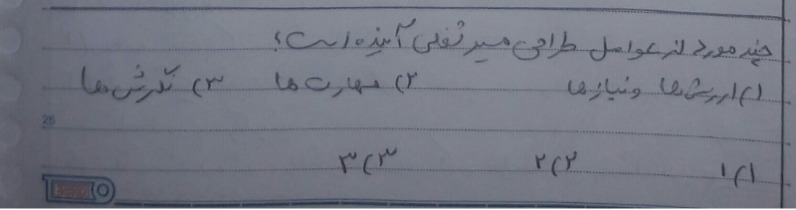 چند مورد از عوامل طراحی مسیر شغلی آینده است؟
۱) ارزش‌ها و نیازها ۲) مهارت ها ۳) نگرش ها
۱) ۱ ۲) ۲ ۳) ۳
26